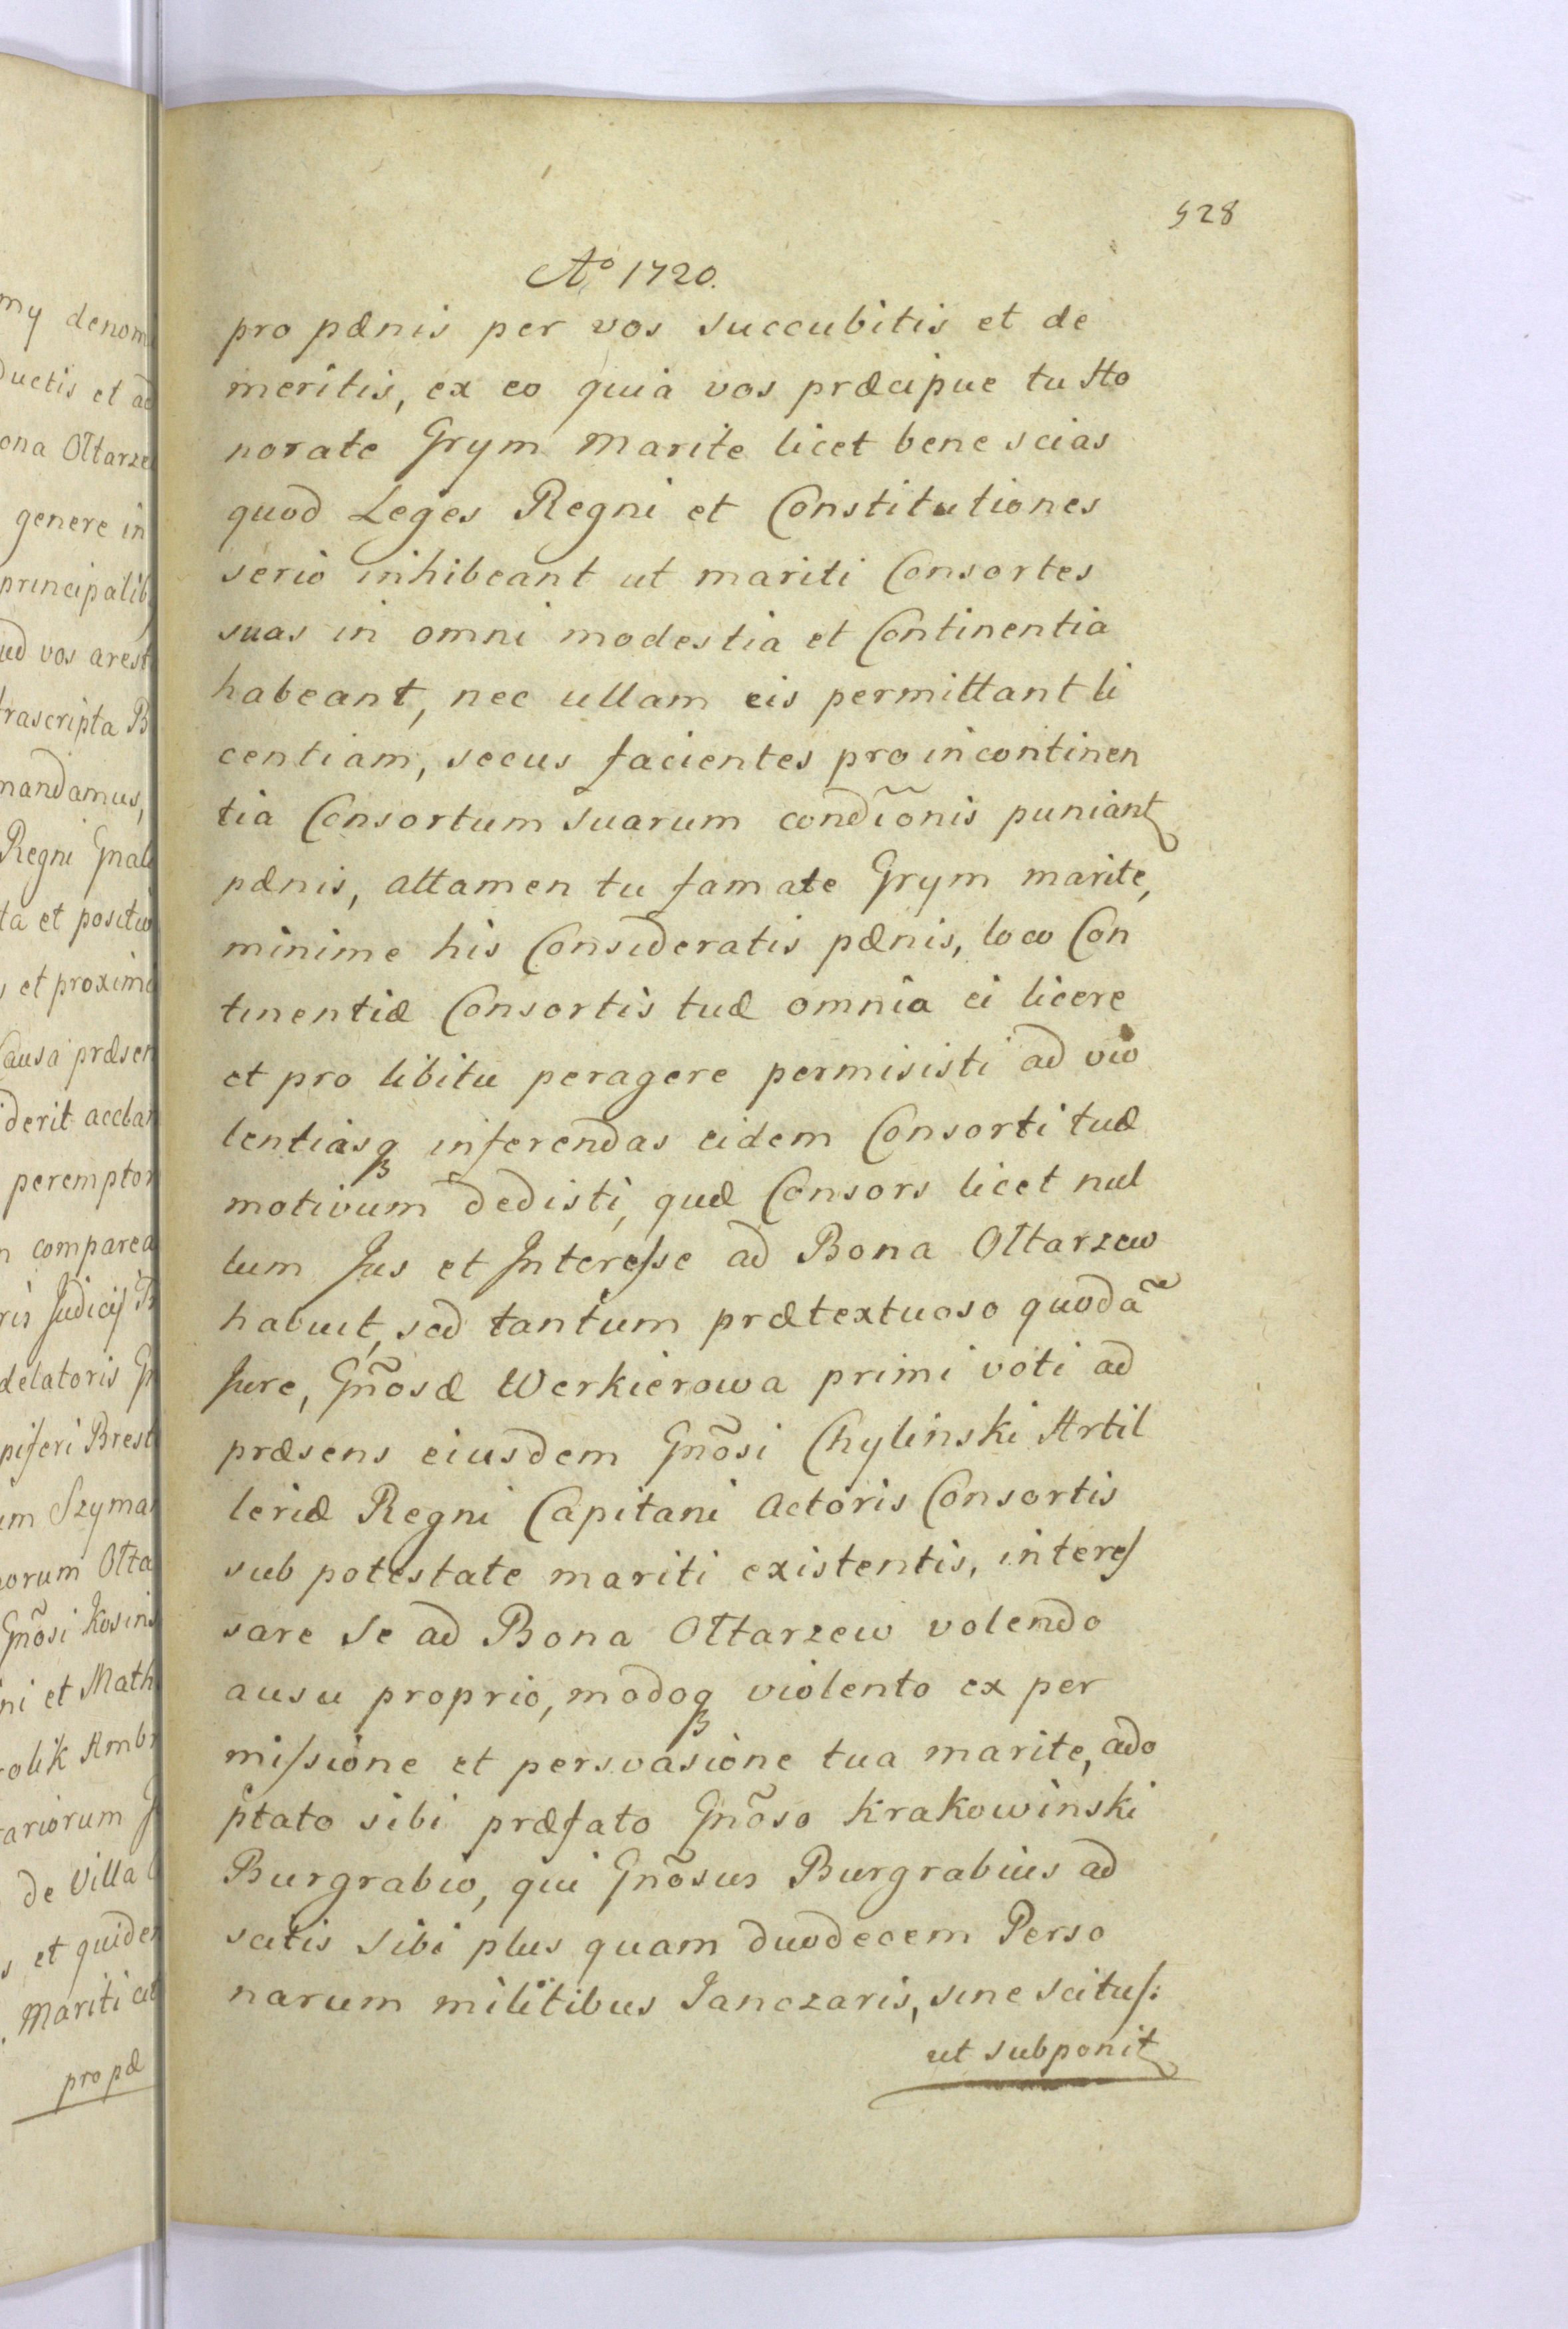 528
Aº 1720.
pro pænis per vos succubitis et de
meritis, ex eo quia vos præcipue tu Ho
norate Grym Marite licet bene scias
quod Leges Regni et Constitutiones
serio inhibeant ut mariti Consortes
suas in omni modestia et Continentia
habeant, nec ullam eis permittant li
centiam, secus facientes pro incontinen
tia Consortum suarum condĩonis puniant
pænis, attamen tu famate Grym marite,
minime his Consideratis pænis, loco Con
tinentiæ Consortis tuæ omnia ei licere
et pro libitu peragere permisisti ad vio
lentiasqꝫ inferendas eidem Consorti tuæ
motivum dedisti, quæ Consors licet nul
lum Jus et Interesse ad Bona Ołtarzew
habuit, sed tantum prætextuoso quodã
Jure, Gñosæ Werkierowa primi voti ad
præsens eiusdem Gñosi Chylinski Artil
leriæ Regni Capitani Actoris Consortis
sub potestate mariti existentis, interes
sare se ad Bona Ołtarzew volendo
ausu proprio, modoqꝫ violento ex per
missione et persvasione tua marite, ado
ptato sibi præfato Gñoso Krakowinski
Burgrabio, qui Gñosus Burgrabius ad
scitis sibi plus quam duodecem Perso
narum militibus Janczaris, sine scitus:
ut subponit
my denom
ductis et ad
ona Ołtarze
genere in
principalib
ud vos arest
trascripta B
mandamus,
Regni Gnal
ta et positio
s et proxim
Causa præsen
iderit acclar
peremptor
n comparea
ris Judicis Tr
delatoris G
piferi Brest
im Szyma
orum Ołta
Gñosi Kosins
ni et Math
rolik Ambr
tariorum J
de Villa
s et quidem
Mariti cit
pro pæ